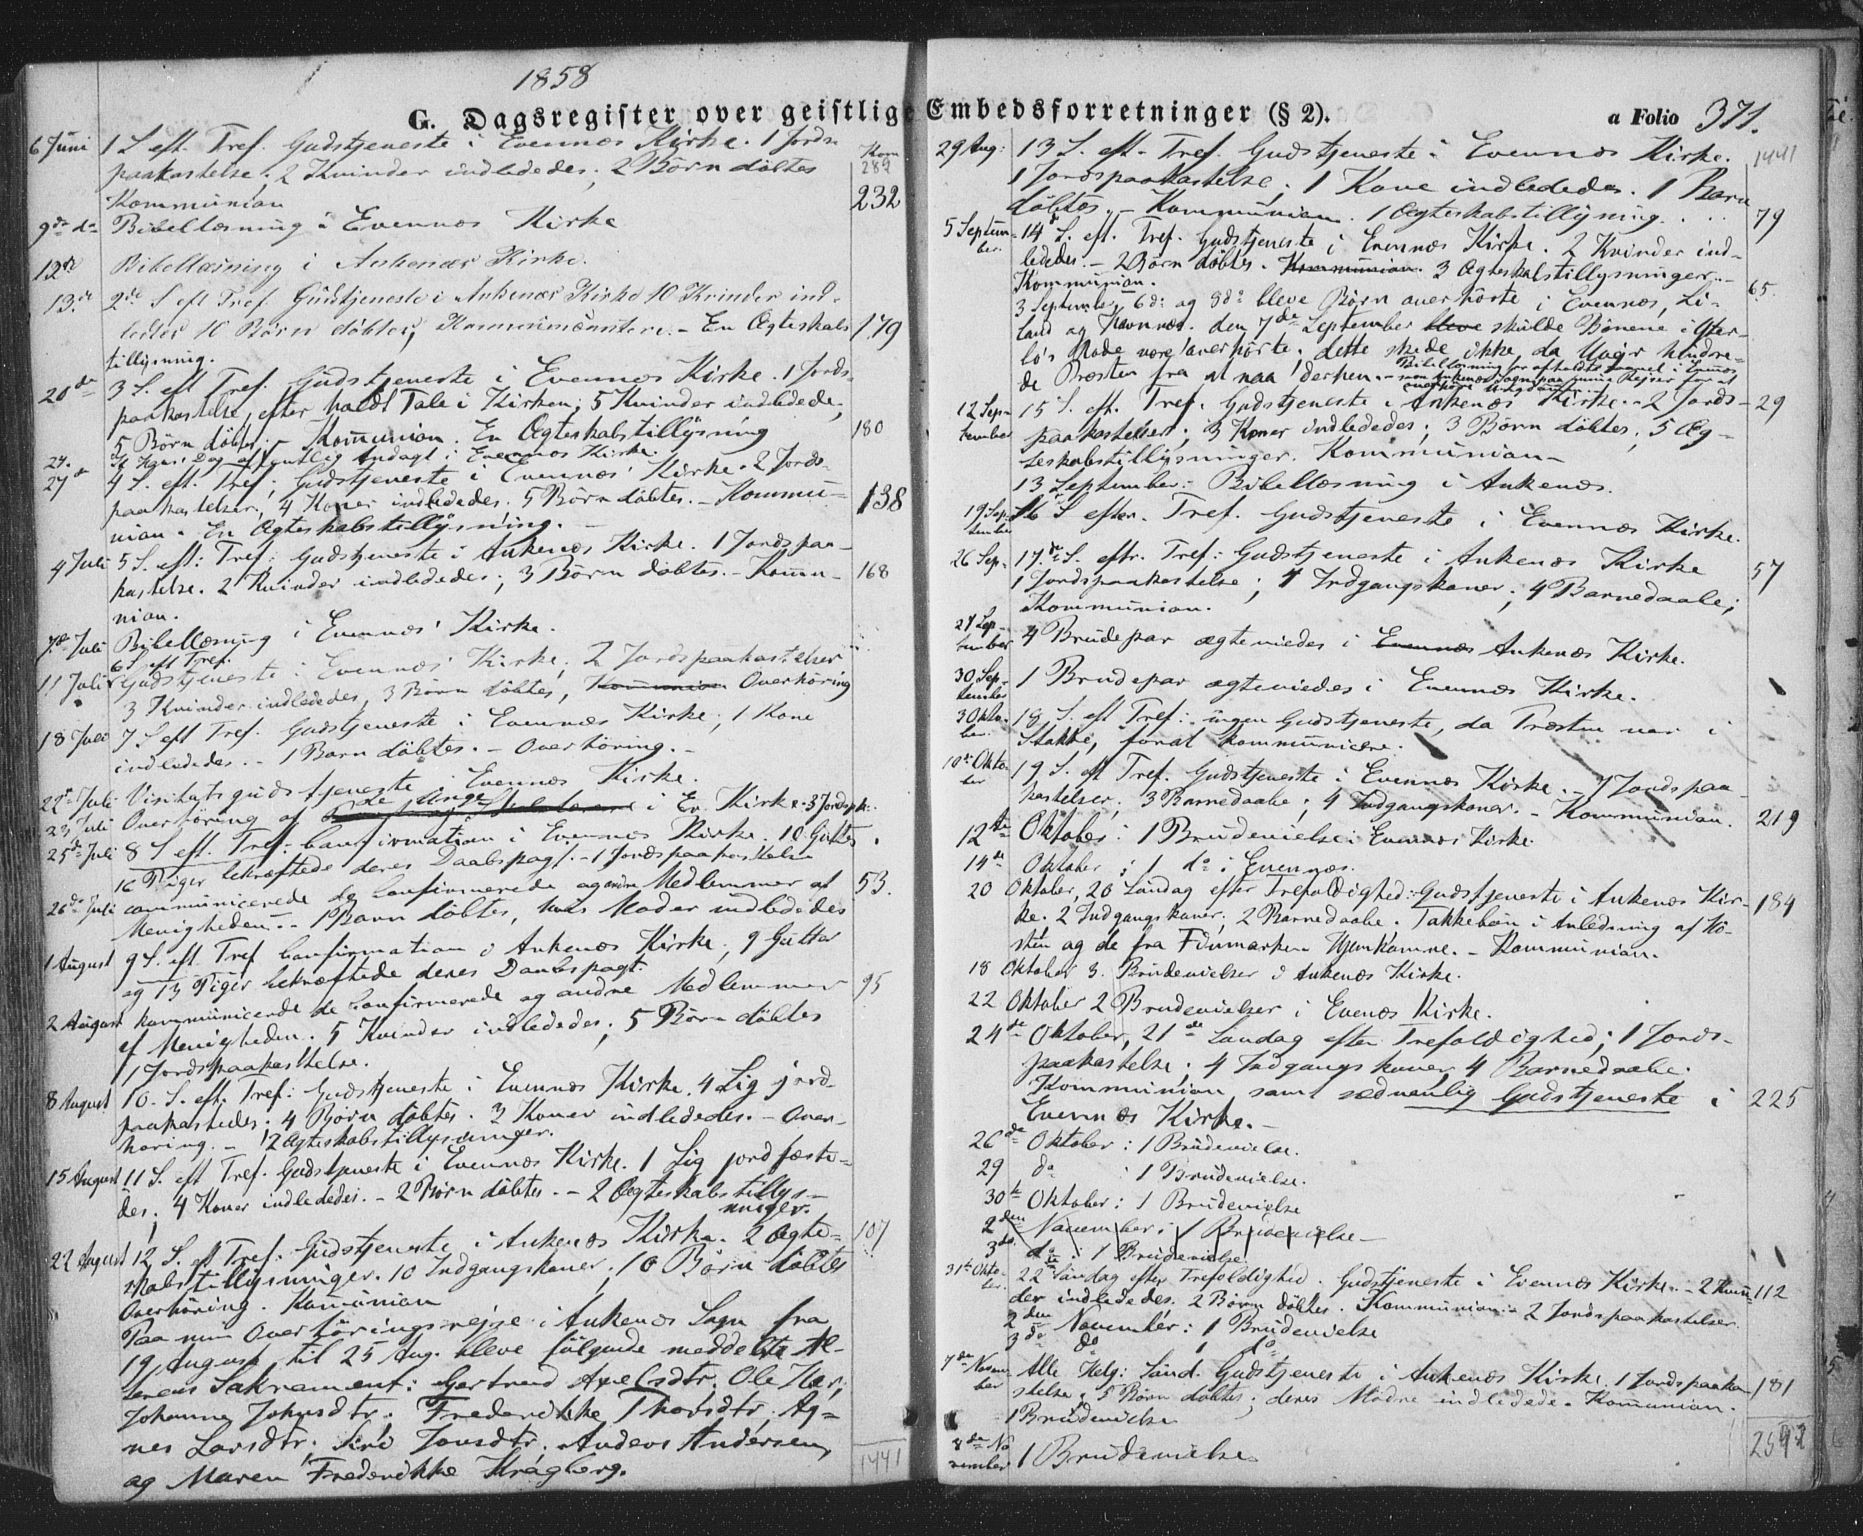 1858
G. Dagsregister over geistlige Embedsforretninger (§ 2). a Folio 371.
6 Juni 1 S. eft. Tref. Gudstjeneste i Evennes Kirke. 1 Jords-
paakastelse; 2 Kvinder indlededes; 2 Børn döbtes 289
Kommunion 232
9de do Bibellæsning i Evennes Kirke
12te Bibellæsning i Ankenæs Kirke.
13de 2de S eft Tref. Gudstjeneste i Ankenæs Kirke 10 Kvinder ind-
ledes 10 Börn döbtes, En Ægteskabs 179
tillysning.
20de 3 S. eft Tref. Gudstjeneste i Evennes Kirke. 1 Jords-
paakastelse, efter holdt Tale i Kirken; 5 Kvinder indledede,
5 Börn döbtes; Kommunion. En Ægteskabstillysning 180
24. St Hans Dag offentlig Andagt i Evennes Kirke.
27de 4 S. eft. Tref; Gudstjeneste i Evennes Kirke. 2 Jords-
paakastelser, 4 Koner indlededes. 5 Börn döbtes. - Kommu- 138
nion. En Ægteskabstillysning.
4 Juli 5 S. eft: Tref: Gudstjeneste i Ankenes Kirke. 1 Jordspaa-
kastelse. 2 Kvinder indlededes; 3 Börn döbtes. - Kommu- 168
nion.
7de Juli Bibellæsning i Evennes Kirke.
6 S eft Tref.
11 Juli Gudstjeneste i Evennes Kirke; 2 Jordspaakastelser
3 Kvinder indlededes, 3 Börn döbtes, Kommunion Overhöring
18 Juli 7 S eft Tref. Gudstjeneste i Evennes Kirke; 1 Kone
indlededes. - 1 Barn döbtes. - Overhöring. -
22de Juli Visitatsgudstjeneste i Evennes Kirke.
23 Juli Overhöring af de Unge i Ev. Kirke. 3 Jordspk.
25de Juli 8 S eft. Tref: Confirmation i Evennes Kirke. 10 Gutter
16 Piger bekræftede deres Daabspagt. - 1 Jordspaakastelse
26de Juli communicerede de Confirmerede og andre Medlemmer af 53.
Menigheden. - 1 Barn döbtes, hvis Moder indlededes
1 August 9 S. eft Tref Confirmation i Ankenes Kirke, 9 Gutter
og 13 Piger bekræftede deres Daabspagt.
2 August kommunicerede de Confirmerede og andre Medlemmer 95
af Menigheden. 5 Kvinder indlededes; 5 Börn döbtes
1 Jordspaakastelse.
8 August 10. S. eft. Tref: Gudstjeneste i Evennes Kirke. 4 Lig jord-
paakastedes; 4 Börn döbtes. 3 Koner indlededes. - Over-
höring. - 2 Ægteskabstillysninger.
15 August 11 S. eft Tref. Gudstjeneste i Evennes Kirke. 1 Lig jordfæste-
des; 4 Koner indlededes. - 2 Börn döbtes. - 2 Ægteskabstillys-
ninger.
22 August 12 S. eft Tref: Gudstjeneste i Ankenes Kirke. 2 Ægte- 107
skabstillysninger. 10 Indgangskoner. 10 Börn döbtes
Overhöring. Kommunion
Paa min Overhöringsrejse i Ankenes Sogn fra
19 August til 25 Aug. bleve fölgende meddelte Al-
terens Sakrament: Gertrud Axelsdtr, Ole
Johanna Johnsdtr. Frederikke Thorsdtr, Ag-
nes Larsdtr, Siri Jonsdtr. Anders Andersen,
og Maren Frederikke Kragberg. 1441
29 Aug: 13 S. eft. Tref. Gudstjeneste i Evennes Kirke. 1441
1 Jordspaakastelse; 1 Kone indlededes. 1 Barn
döbtes. - Kommunion. 1 Ægteskabstillysning. 79
5 Septem- 14de S. eft. Tref. Gudstjeneste i Evennes Kirke. 2 Kvinder ind-
ber. ledede. - 2 Börn döbtes. Kommunion. 3 Ægteskabstillysninger. -
Kommunion. 65
3 September, 6de og 8de bleve Börn overhörte i Evennes, Li-
land og Havnnes. den 7de September bleve skulde Bönene i
Mode være overhörte. dette skede ikke da Uveir hindre-
de Præsten fra at naa derhen.
Bibellæsning
12 Sep- 15 S. eft. Tref. Gudstjeneste i Ankenes Kirke. - 2 Jords- 29
tember paakastelser; 3 Koner indlededes; 3 Börn döbtes; 5 Æg-
teskabstillysninger. Kommunion -
13 September: Bibellæsning i Ankenes.
19 Sep- 16 S efter. Tref. Gudstjeneste i Evennes Kirke.
tember
26 Sep- 17de S. eftr. Tref: Gudstjeneste i Ankenes Kirke 57
1 Jordspaakastelse; 4 Indgangskoner; 4 Barnedaabe;
Kommunion.
27 Sep-
tember 4 Brudepar ægteviedes i Evennes Ankenes Kirke.
30 Sep- 1 Brudepar ægteviedes i Evennes Kirke.
tember
3 Okto- 18 S. eft Tref: ingen Gudstjeneste, da Præsten var i
ber. for at kommunicere.
10de Okto- 19 S. eft Tref. Gudstjeneste i Evennes Kirke. - 7 Jordspaa-
ber kastelser; 3 Barnedaabe; 4 Indgangskoner. - Kommunion. 219
12te Oktober: 1 Brudevielse i Evennes Kirke.
14de Oktober: 1 do i Evennes.
20 Oktober, 20 Söndag efter Trefoldighed: Gudstjeneste i Ankenes Kir- 184
ke. 2 Indgangskoner; 2 Barnedaabe. Takkebön i Anledning af Hö-
sten og de fra Finmarken Hjemkomne. - Kommunion.
18 Oktober 3. Brudevielser i Ankenes Kirke.
22 Oktober 2 Brudevielser i Evenes Kirke.
24de Oktober, 21de Söndag efter Trefoldighed; 1 Jords-
paakastelse; 4 Indgangskoner, 4 Barnedaabe.
Kommunion samt sædvanlig Gudstjeneste i 225
Evennes Kirke. -
26de Oktober: 1 Brudevielse.
29 do : 1 Brudevielse.
30te Oktober: 1 Brudevielse
2den November: 1 Brudevielse
3die do : 1 Brudevielse
31te Okto- 22de Söndag efter Trefoldighed. Gudstjeneste i Evennes Kirke. - 2 Kvin- 112
ber. der indledede. 2 Börn döbtes. Kommunion. - 2 Jordspaakastelser.
2den November: 1 Brudevielse
3de do 1 do
7de Novem- Alle Helg: Sönd. Gudstjeneste i Ankenes Kirke. 1 Jordspaaka- 181
ber stelse; 5 Börn döbtes; deres Mödre indledede. Kommunion.
1 Brudevielse
8de No- 1 Brudevielse
vember